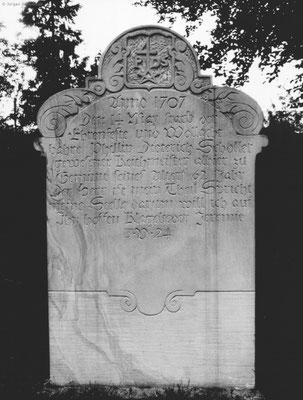 Anno 1707
Den 14 May starb der
Ehrenfeste und Wolacht
bahre Phillip Dieterich Scholler
gewesener Reichmeister alhier zu
seines Alters 62 Jahr
Der Herr ist mein Theil Spricht
meine Seele darum will ich auf
Ihn hoffen Klagelieder Jeremie
3 V 24